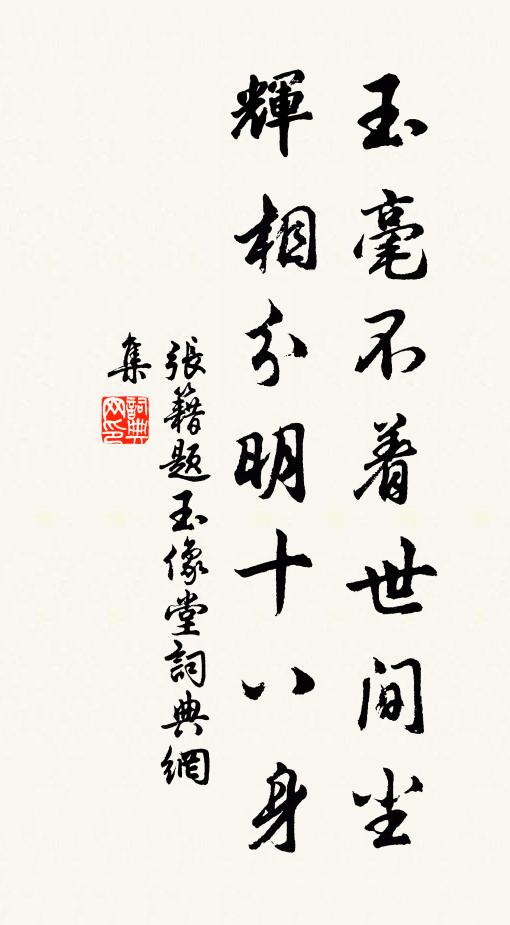 玉毫不着世間尘
輝相分明十八身
張籍題玉像堂詞典網
集
詞典网印